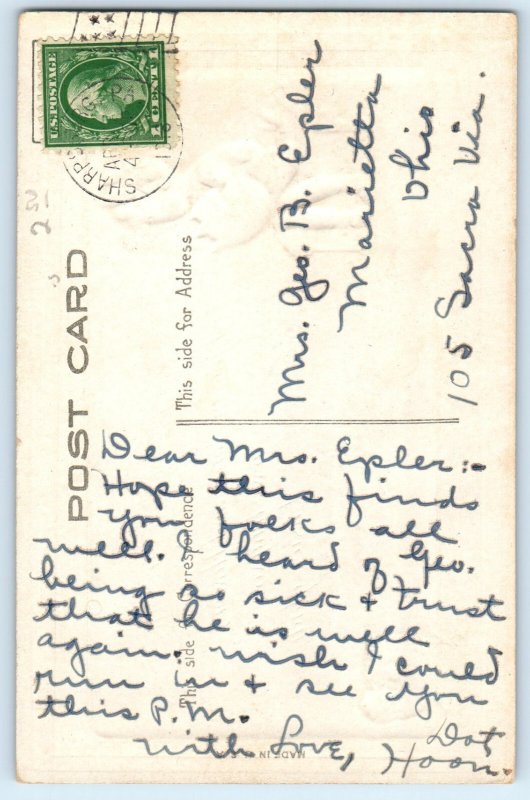 U.S.POSTAGE
1 CENT 1
SHARPS
AP
4
POST CARD
This side for Address
Mrs. Geo. B. Epler
Marietta
Ohio
105 Sacra Via.
This side for Correspondence
Dear Mrs. Epler:-
Hope this finds
you folks all
well. I heard of Geo.
being so sick & trust
that he is well
again. wish I could
run in & see you
this P.M.
with Love,
Dot
Hoon.
MADE IN U.S.A.